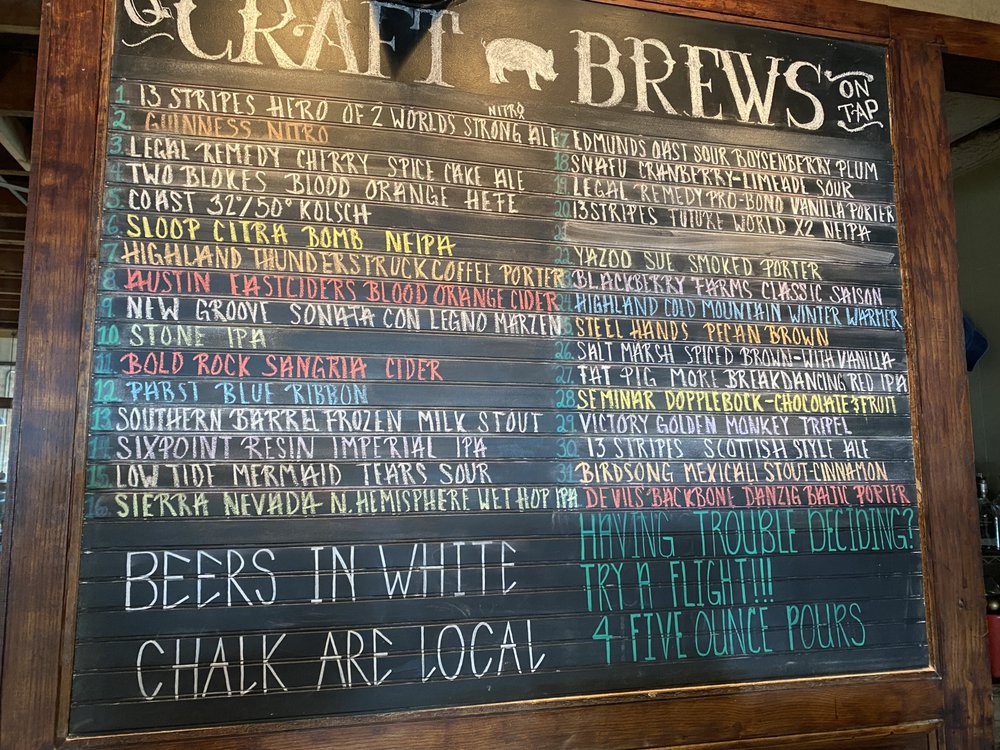 CRAFT BREWS ON TAP
1. 13 STRIPES HERO OF 2 WORLDS STRONG ALE NITRO
2. GUINNESS NITRO
3. LEGAL REMEDY CHERRY SPICE CAKE ALE
4. TWO BLOKES BLOOD ORANGE HEFE
5. COAST 32°/50° KOLSCH
6. SLOOP CITRA BOMB NEIPA
7. HIGHLAND THUNDERSTRUCK COFFEE PORTER
8. AUSTIN EASTCIDERS BLOOD ORANGE CIDER
9. NEW GROOVE SONATA CON LEGNO MARZEN
10. STONE IPA
11. BOLD ROCK SANGRIA CIDER
12. PABST BLUE RIBBON
13. SOUTHERN BARREL FROZEN MILK STOUT
14. SIXPOINT RESIN IMPERIAL IPA
15. LOW TIDE MERMAID TEARS SOUR
16. SIERRA NEVADA N. HEMISPHERE WET HOP IPA
17. EDMUNDS OAST SOUR BOYSENBERRY PLUM
18. SNAFU CRANBERRY-LIMEADE SOUR
19. LEGAL REMEDY PRO-BONO VANILLA PORTER
20. 13 STRIPES FUTURE WORLD X2 NEIPA
21.
22. YAZOO SUE SMOKED PORTER
23. BLACKBERRY FARMS CLASSIC SAISON
24. HIGHLAND COLD MOUNTAIN WINTER WARMER
25. STEEL HANDS PECAN BROWN
26. SALT MARSH SPICED BROWN-WITH VANILLA
27. FAT PIG MORE BREAKDANCING RED IPA
28. SEMINAR DOPPLEBOCK-CHOCOLATE & FRUIT
29. VICTORY GOLDEN MONKEY TRIPEL
30. 13 STRIPES SCOTTISH STYLE ALE
31. BIRDSONG MEXICALI STOUT-CINNAMON
DEVILS BACKBONE DANZIG BALTIC PORTER
BEERS IN WHITE
CHALK ARE LOCAL
HAVING TROUBLE DECIDING?
TRY A FLIGHT!!!
4 FIVE OUNCE POURS